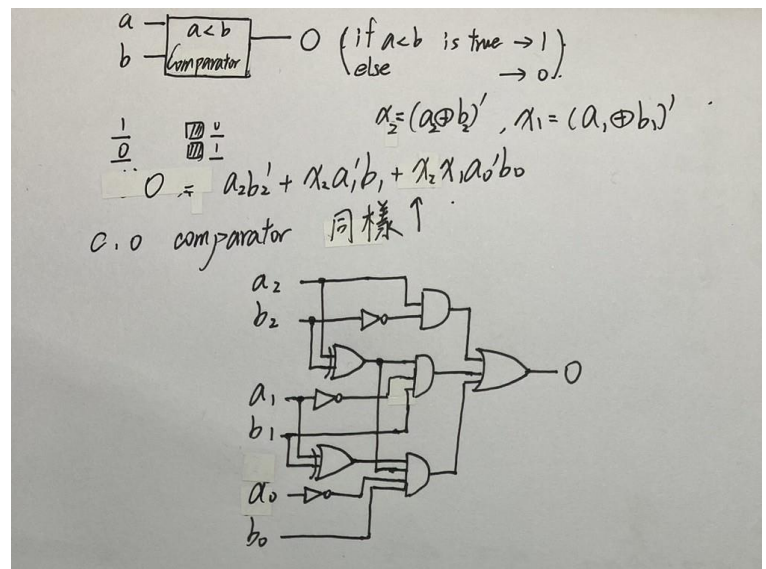 a
a<b
b
Comparator
O
(if a<b is true → 1
else → 0).
x₂=(a₂⊕b₂)', x₁=(a₁⊕b₁)'
1
0
0
1
O = a₂b₂' + x₂a₁'b₁ + x₂x₁a₀'b₀
C.O comparator 同様↑
a₂
b₂
O
a₁
b₁
a₀
b₀